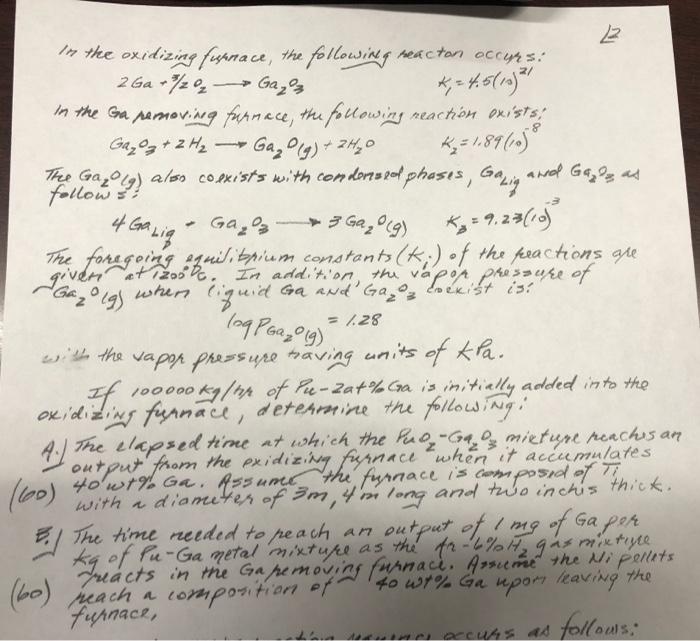 12
In the oxidizing furnace, the following reacton occurs:
2Ga + 3/2 O2 → Ga2O3 K1 = 4.5(10)^21
In the Ga removing furnace, the following reaction exists:
Ga2O3 + 2H2 → Ga2O(g) + 2H2O K2 = 1.89(10)^-8
The Ga2O(g) also coexists with condensed phases, Ga Liq and Ga2O3 as
follows:
4 Ga Liq + Ga2O3 → 3 Ga2O(g) K3 = 9.23(10)^-3
The foregoing equilibrium constants (Ki) of the reactions are
given at 1200°C. In addition, the vapor pressure of
Ga2O(g) when liquid Ga and Ga2O3 coexist is:
log P Ga2O(g) = 1.28
with the vapor pressure having units of kPa.
If 100000 kg/hr of Pu-2at% Ga is initially added into the
oxidizing furnace, determine the following:
A.) The elapsed time at which the PuO2-Ga2O3 mixture reaches an
output from the oxidizing furnace when it accumulates
(60) 40 wt% Ga. Assume the furnace is composed of Ti
with a diameter of 3m, 4m long and two inches thick.
B.) The time needed to reach an output of 1 mg of Ga per
kg of Pu-Ga metal mixture as the Ar-6%H2 gas mixture
reacts in the Ga removing furnace. Assume the Ni pellets
(60) reach a composition of 40 wt% Ga upon leaving the
furnace,
occurs as follows: